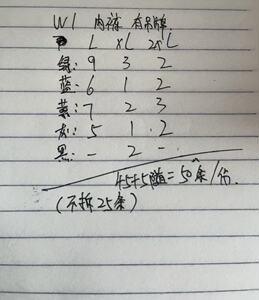 W1 内裤 有吊牌.
L XL 2XL
绿: 9 3 2
蓝: 6 1 2
黄: 7 2 3
灰: 5 1 2
黑: - 2 -
45+5 = 50条/份.
(不拆25条)